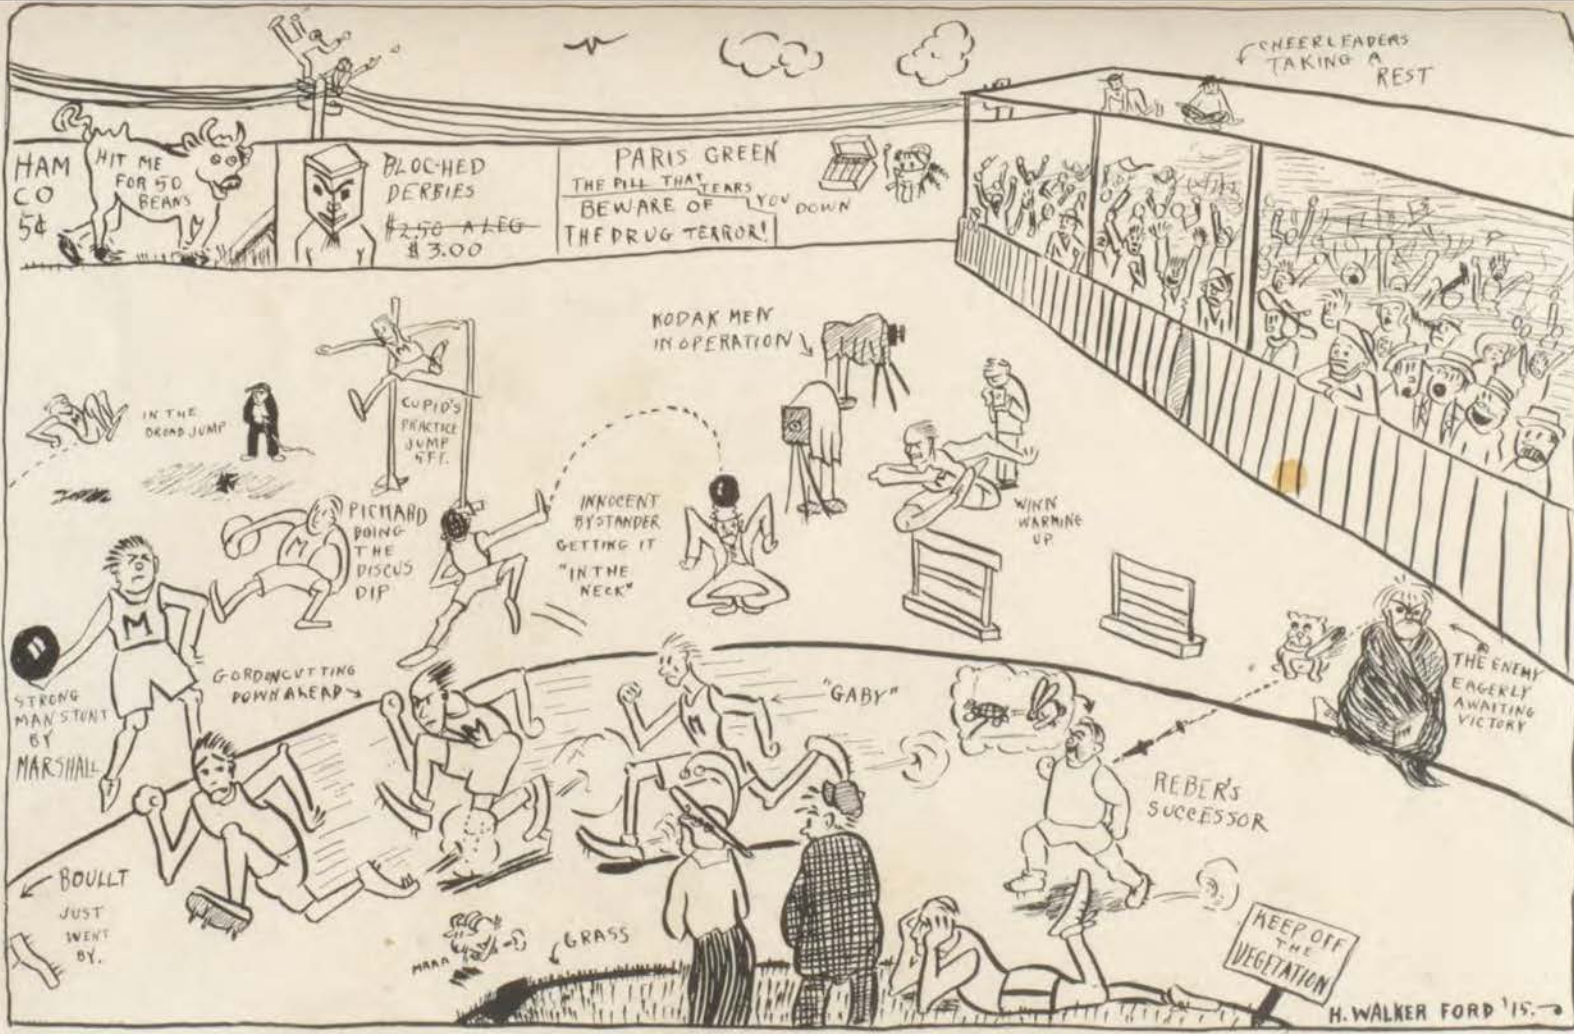 CHEERLEADERS
TAKING A
REST
HAM
CO
5¢
HIT ME
FOR 50
BEANS
BLOC-HED
DERBIES
$2.50 A LEG
$3.00
PARIS GREEN
THE PILL THAT TEARS
YOU DOWN
BEWARE OF
THE DRUG TERROR!
KODAK MEN
IN OPERATION
IN THE
BROAD JUMP
CUPID'S
PRACTICE
JUMP
5 FT.
PICKARD
DOING
THE
DISCUS
DIP
INNOCENT
BYSTANDER
GETTING IT
"IN THE
NECK"
WINN
WARMING
UP
M
M
M
M
M
M
STRONG
MAN STUNT
BY
MARSHALL
GORDON CUTTING
DOWN AHEAD
"GABY"
THE ENEMY
EAGERLY
AWAITING
VICTORY
REBER'S
SUCCESSOR
BOULLT
JUST
WENT
BY.
MAAA
GRASS
KEEP OFF
THE
VEGETATION
H. WALKER FORD '15.